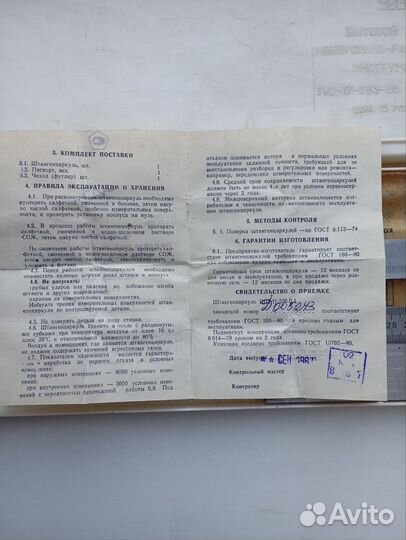 3. КОМПЛЕКТ ПОСТАВКИ
3.1. Штангенциркуль, шт. 1
3.2. Паспорт, экз. 1
3.3. Чехол (футляр) шт. 1
4. ПРАВИЛА ЭКСПЛУАТАЦИИ И ХРАНЕНИЯ
4.1. При расконсервации штангенциркуль необходимо
протереть салфеткой, смоченной в бензине, затем насу-
хо чистой салфеткой, особенно измерительные поверхно-
сти, и проверить установку нониуса на нуль.
4.2. В процессе работы штангенциркуль протереть
салфеткой, смоченной в водно-щелочном растворе
СОЖ, затем насухо чистой салфеткой.
По окончании работы штангенциркуль протереть
4.3. Перед работой штангенциркулем необходимо
совместить нулевые штрихи шкал штанги и нониуса.
4.4. Не допускать:
грубых ударов или падения во избежание изгиба
штанги и других повреждений;
царапин на измерительных поверхностях.
Избегать трения измерительных поверхностей штанген-
циркуля по контролируемой детали.
4.5. Не измерять деталь на ходу станка.
4.6. Штангенциркуль хранить в чехле с раздвину-
тыми губками при температуре воздуха от 10 до
плюс 30°С и относительной влажности до 80%
Воздух в помещении, где хранится штангенциркуль,
не должен содержать примесей агрессивных газов.
4.7. Показатели надежности является гарантиро-
ванная наработка до первого отказа в условных
измерениях:
при наружных измерениях — 8000 условных измере-
ний;
при внутренних измерениях — 3000 условных измере-
ний с вероятностью безотказной работы 0,8. Под
отказом понимается потеря в нормальных условиях
эксплуатации заданной точности, требующей для ее
восстановления разборки и регулировки или ремонта-
например, перешлифовки измерительных поверхностей.
4.8. Средний срок сохраняемости штангенциркулей
должен быть не менее 4-х лет при условии переконсер-
вации на 2 год.
4.9. Межповерочный интервал устанавливается пот-
ребителем в зависимости от интенсивности эксплуатации
штангенциркуля.
5. МЕТОДЫ КОНТРОЛЯ
5.1. Поверка штангенциркулей —по ГОСТ 8.113—74
6. ГАРАНТИИ ИЗГОТОВЛЕНИЯ
6.1. Предприятие-изготовитель гарантирует соответ-
ствие штангенциркулей требованиям ГОСТ 166—80
Гарантийный срок штангенциркуля — 12 месяцев со
дня ввода в эксплуатацию, а при продаже через роз-
ничную сеть — 12 месяцев со дня продажи.
СВИДЕТЕЛЬСТВО О ПРИЕМКЕ
Штангенциркуль
заводской номер
требованиям ГОСТ 166—80 и признан годным для
эксплуатации.
Подвергнут консервации согласно требованиям ГОСТ
9.014—78 сроком на 2 года.
Упаковка согласно требованиям ГОСТ 13762—80.
Дата выпуска СЕН 198
Контрольный мастер
Контролер
Avito